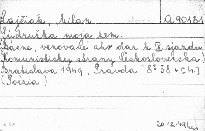 Lajčiak, Milan. A 90484
Súdružka moja zem.
Básne, venované ako dar k IX. sjazdu
Komunistickej strany Československa.
Bratislava 1949, Pravda. 8° 38 + [4]
(Poézia)
20.12.49